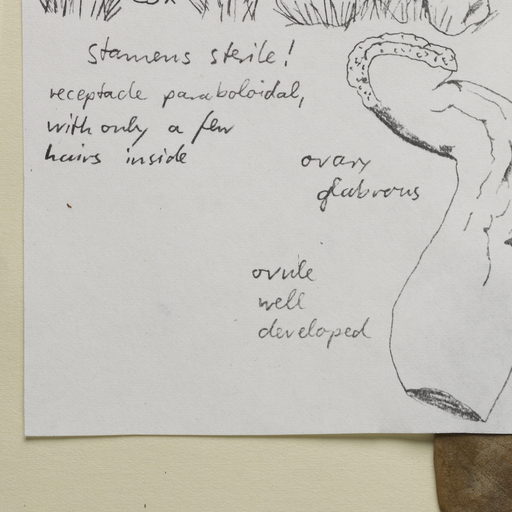 stamens sterile!
receptacle paraboloidal,
with only a few
hairs inside
ovary
glabrous
ovule
well
developed